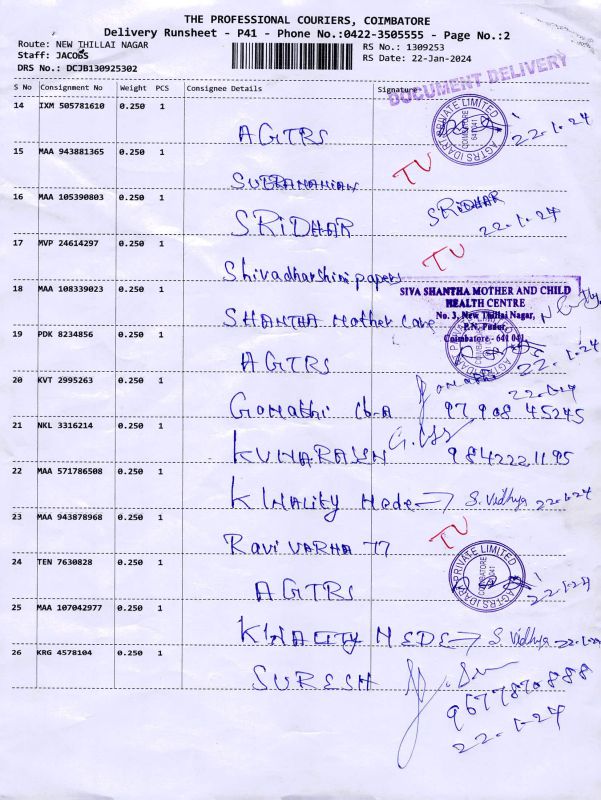 THE PROFESSIONAL COURIERS, COIMBATORE
Delivery Runsheet - P41 - Phone No.:0422-3505555 - Page No.:2
Route: NEW THILLAI NAGAR
RS No.: 1309253
Staff: JACOBS
RS Date: 22-Jan-2024
DRS No.: DCJB130925302
DOCUMENT DELIVERY
S No Consignment No Weight PCS Consignee Details Signature
14 IXM 505781610 0.250 1
AGTRS 22.1.24
15 MAA 943881365 0.250 1
SUBRAMANIAN TU
16 MAA 105390803 0.250 1
SRIDHAR SRIDHAR 22.1.24
17 MVP 24614297 0.250 1
Shivadharshini papers TU
18 MAA 108339023 0.250 1
SIVA SHANTHA MOTHER AND CHILD
HEALTH CENTRE
No. 3, New Thillai Nagar,
P.N. Pudur,
Coimbatore - 641 041.
SHANTHA Mother Care
19 PDK 8234856 0.250 1
AGTRS 22.1.24
20 KVT 2995263 0.250 1
Gomathi 22.1.24
Gomathi 97908 45245
21 NKL 3316214 0.250 1
9842221195
22 MAA 571786508 0.250 1
S. Vidhya 22.1.24
23 MAA 943878968 0.250 1
Ravi VARMA 77 TU
24 TEN 7630828 0.250 1
AGTRS 22.1.24
25 MAA 107042977 0.250 1
S. Vidhya 22.1.24
26 KRG 4578104 0.250 1
SURESH
9677870888
22.1.24